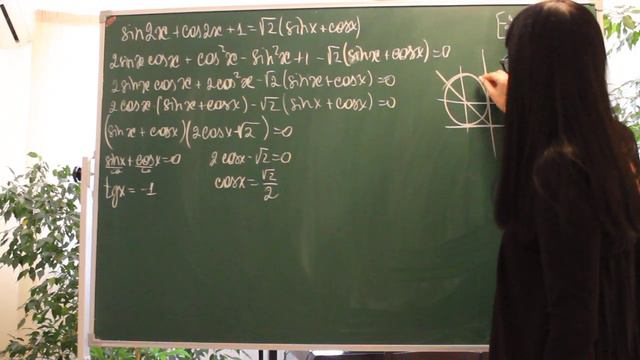 sin2x + cos2x + 1 = √2 (sinx + cosx)
2sinx cosx + cos²x - sin²x + 1 - √2 (sinx + cosx) = 0
2sinx cosx + 2cos²x - √2 (sinx + cosx) = 0
2cosx (sinx + cosx) - √2 (sinx + cosx) = 0
(sinx + cosx)(2cosx - √2) = 0
sinx + cosx = 0   2cosx - √2 = 0
tgx = -1   cosx = √2/2